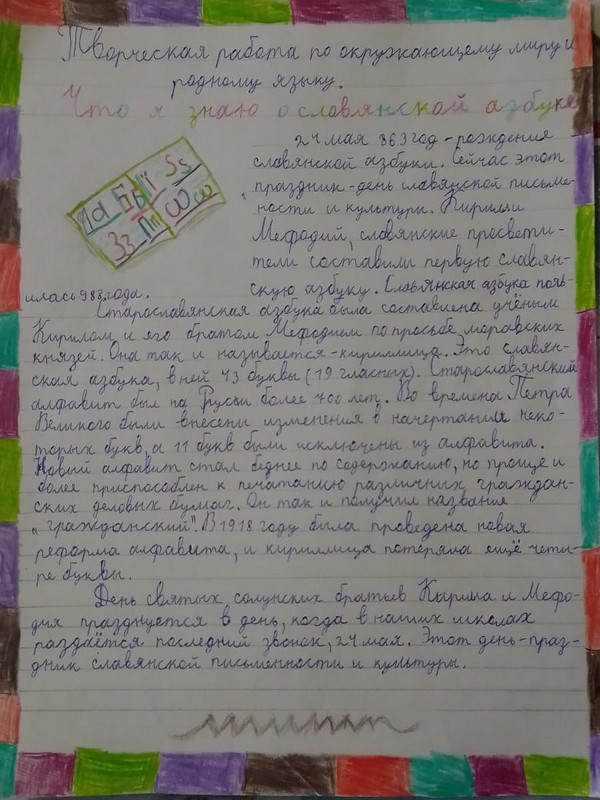 Творческая работа по окружающему миру и
родному языку.
Что я знаю о славянской азбуке
24 мая 863 год - рождения
славянской азбуки. Сейчас этот
праздник - день славянской письме-
ности и культуры. Кирилл и
Мефодий, славянские просвети-
тели составили первую славян-
скую азбуку. Славянская азбука появ-
илась 988 года.
Старославянская азбука была составлена учёным
Кирилом и его братом Мефодием по просьбе моравских
князей. Она так и называется - кириллица. Это славян-
ская азбука, в ней 43 буквы (19 гласных). Старославянский
алфавит был на Руссы более 700 лет. Во времена Петра
Великого были внесены изменения в начертания неко-
торых букв, а 11 букв были исключены из алфавита.
Новый алфавит стал беднее по содержанию, но проще и
более приспособлен к печатанию различных граждан-
ских деловых бумаг. Он так и получил название
"гражданский". В 1918 году была проведена новая
реформа алфавита, и кириллица потеряла ещё четы-
ре буквы.
День святых солунских братьев Кирила и Мефо-
дия празднуется в день, когда в наших школах
раздаётся последний звонок, 24 мая. Этот день - праз-
дник славянской письменности и культуры.